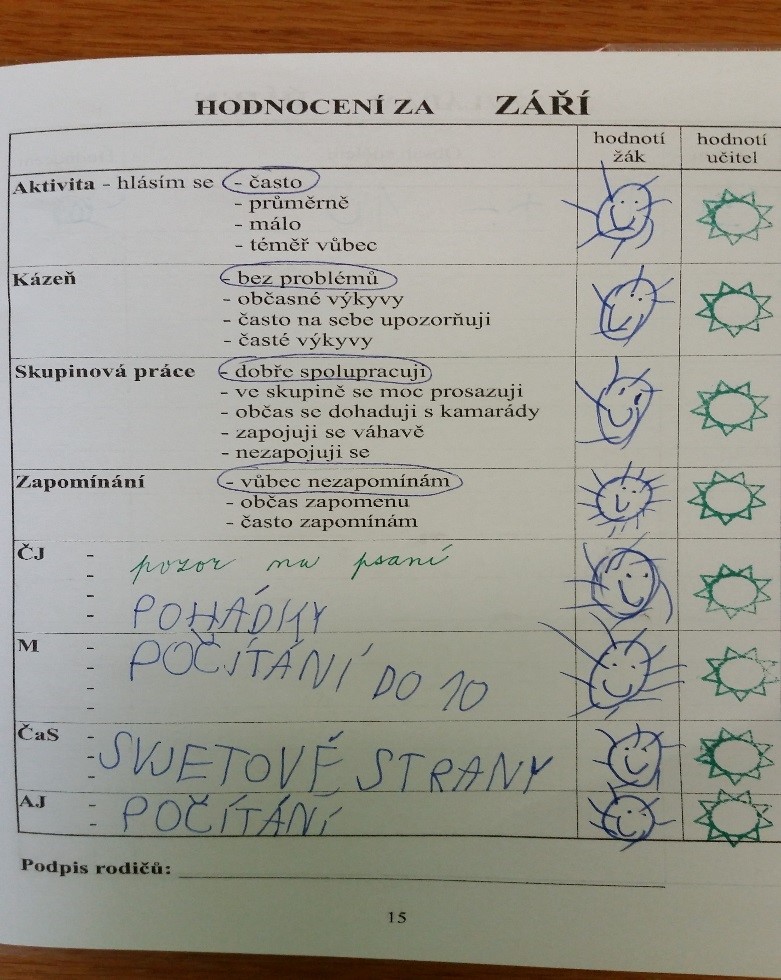 HODNOCENÍ ZA ZÁŘÍ
hodnotí žák
hodnotí učitel
Aktivita - hlásím se - často
- průměrně
- málo
- téměř vůbec
Kázeň - bez problémů
- občasné výkyvy
- často na sebe upozorňuji
- časté výkyvy
Skupinová práce - dobře spolupracuji
- ve skupině se moc prosazuji
- občas se dohaduji s kamarády
- zapojuji se váhavě
- nezapojuji se
Zapomínání - vůbec nezapomínám
- občas zapomenu
- často zapomínám
ČJ - pozor na psaní
- POHÁDKY
M - POČÍTÁNÍ DO 10
ČaS - SVJETOVÉ STRANY
AJ - POČÍTÁNÍ
Podpis rodičů:
15